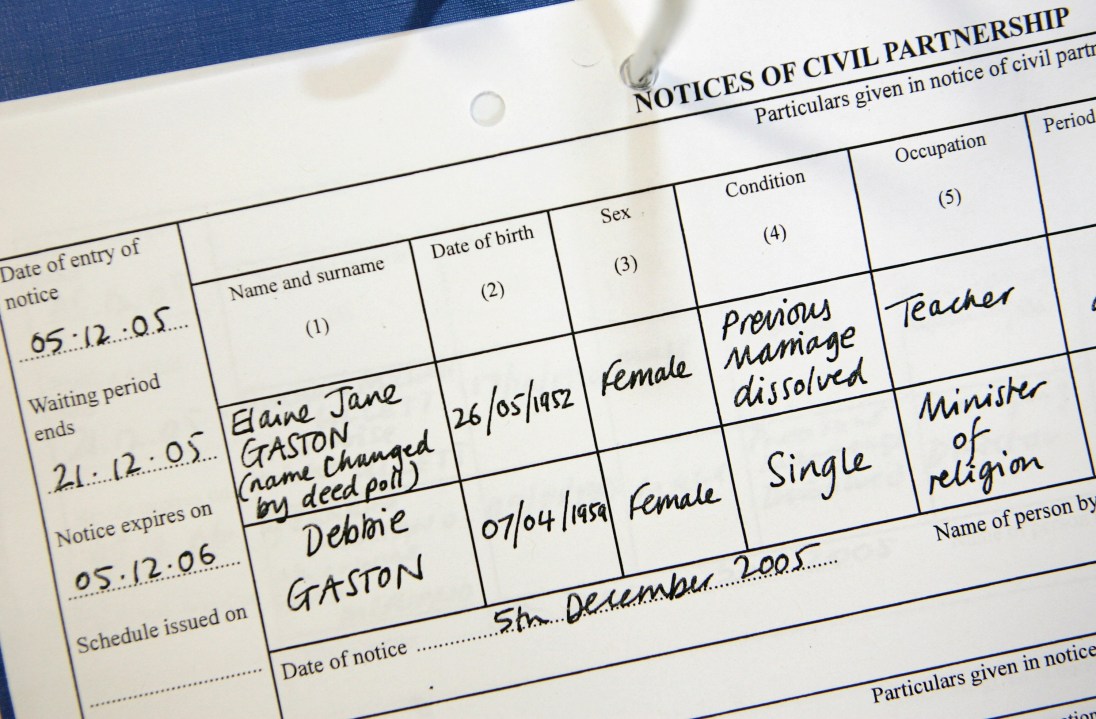 NOTICES OF CIVIL PARTNERSHIP
Particulars given in notice of civil
Date of entry of
notice
05.12.05
Waiting period
ends
21.12.05
Notice expires on
05.12.06
Schedule issued on
Name and surname
(1)
Date of birth
(2)
Sex
(3)
Condition
(4)
Occupation
(5)
Period
Elaine Jane
GASTON
(name changed
by deed poll)
26/05/1952
Female
Previous
Marriage
dissolved
Teacher
Debbie
GASTON
07/04/1959
Female
Single
Minister
of
religion
Date of notice 5th December 2005
Name of person by
Particulars given in notice